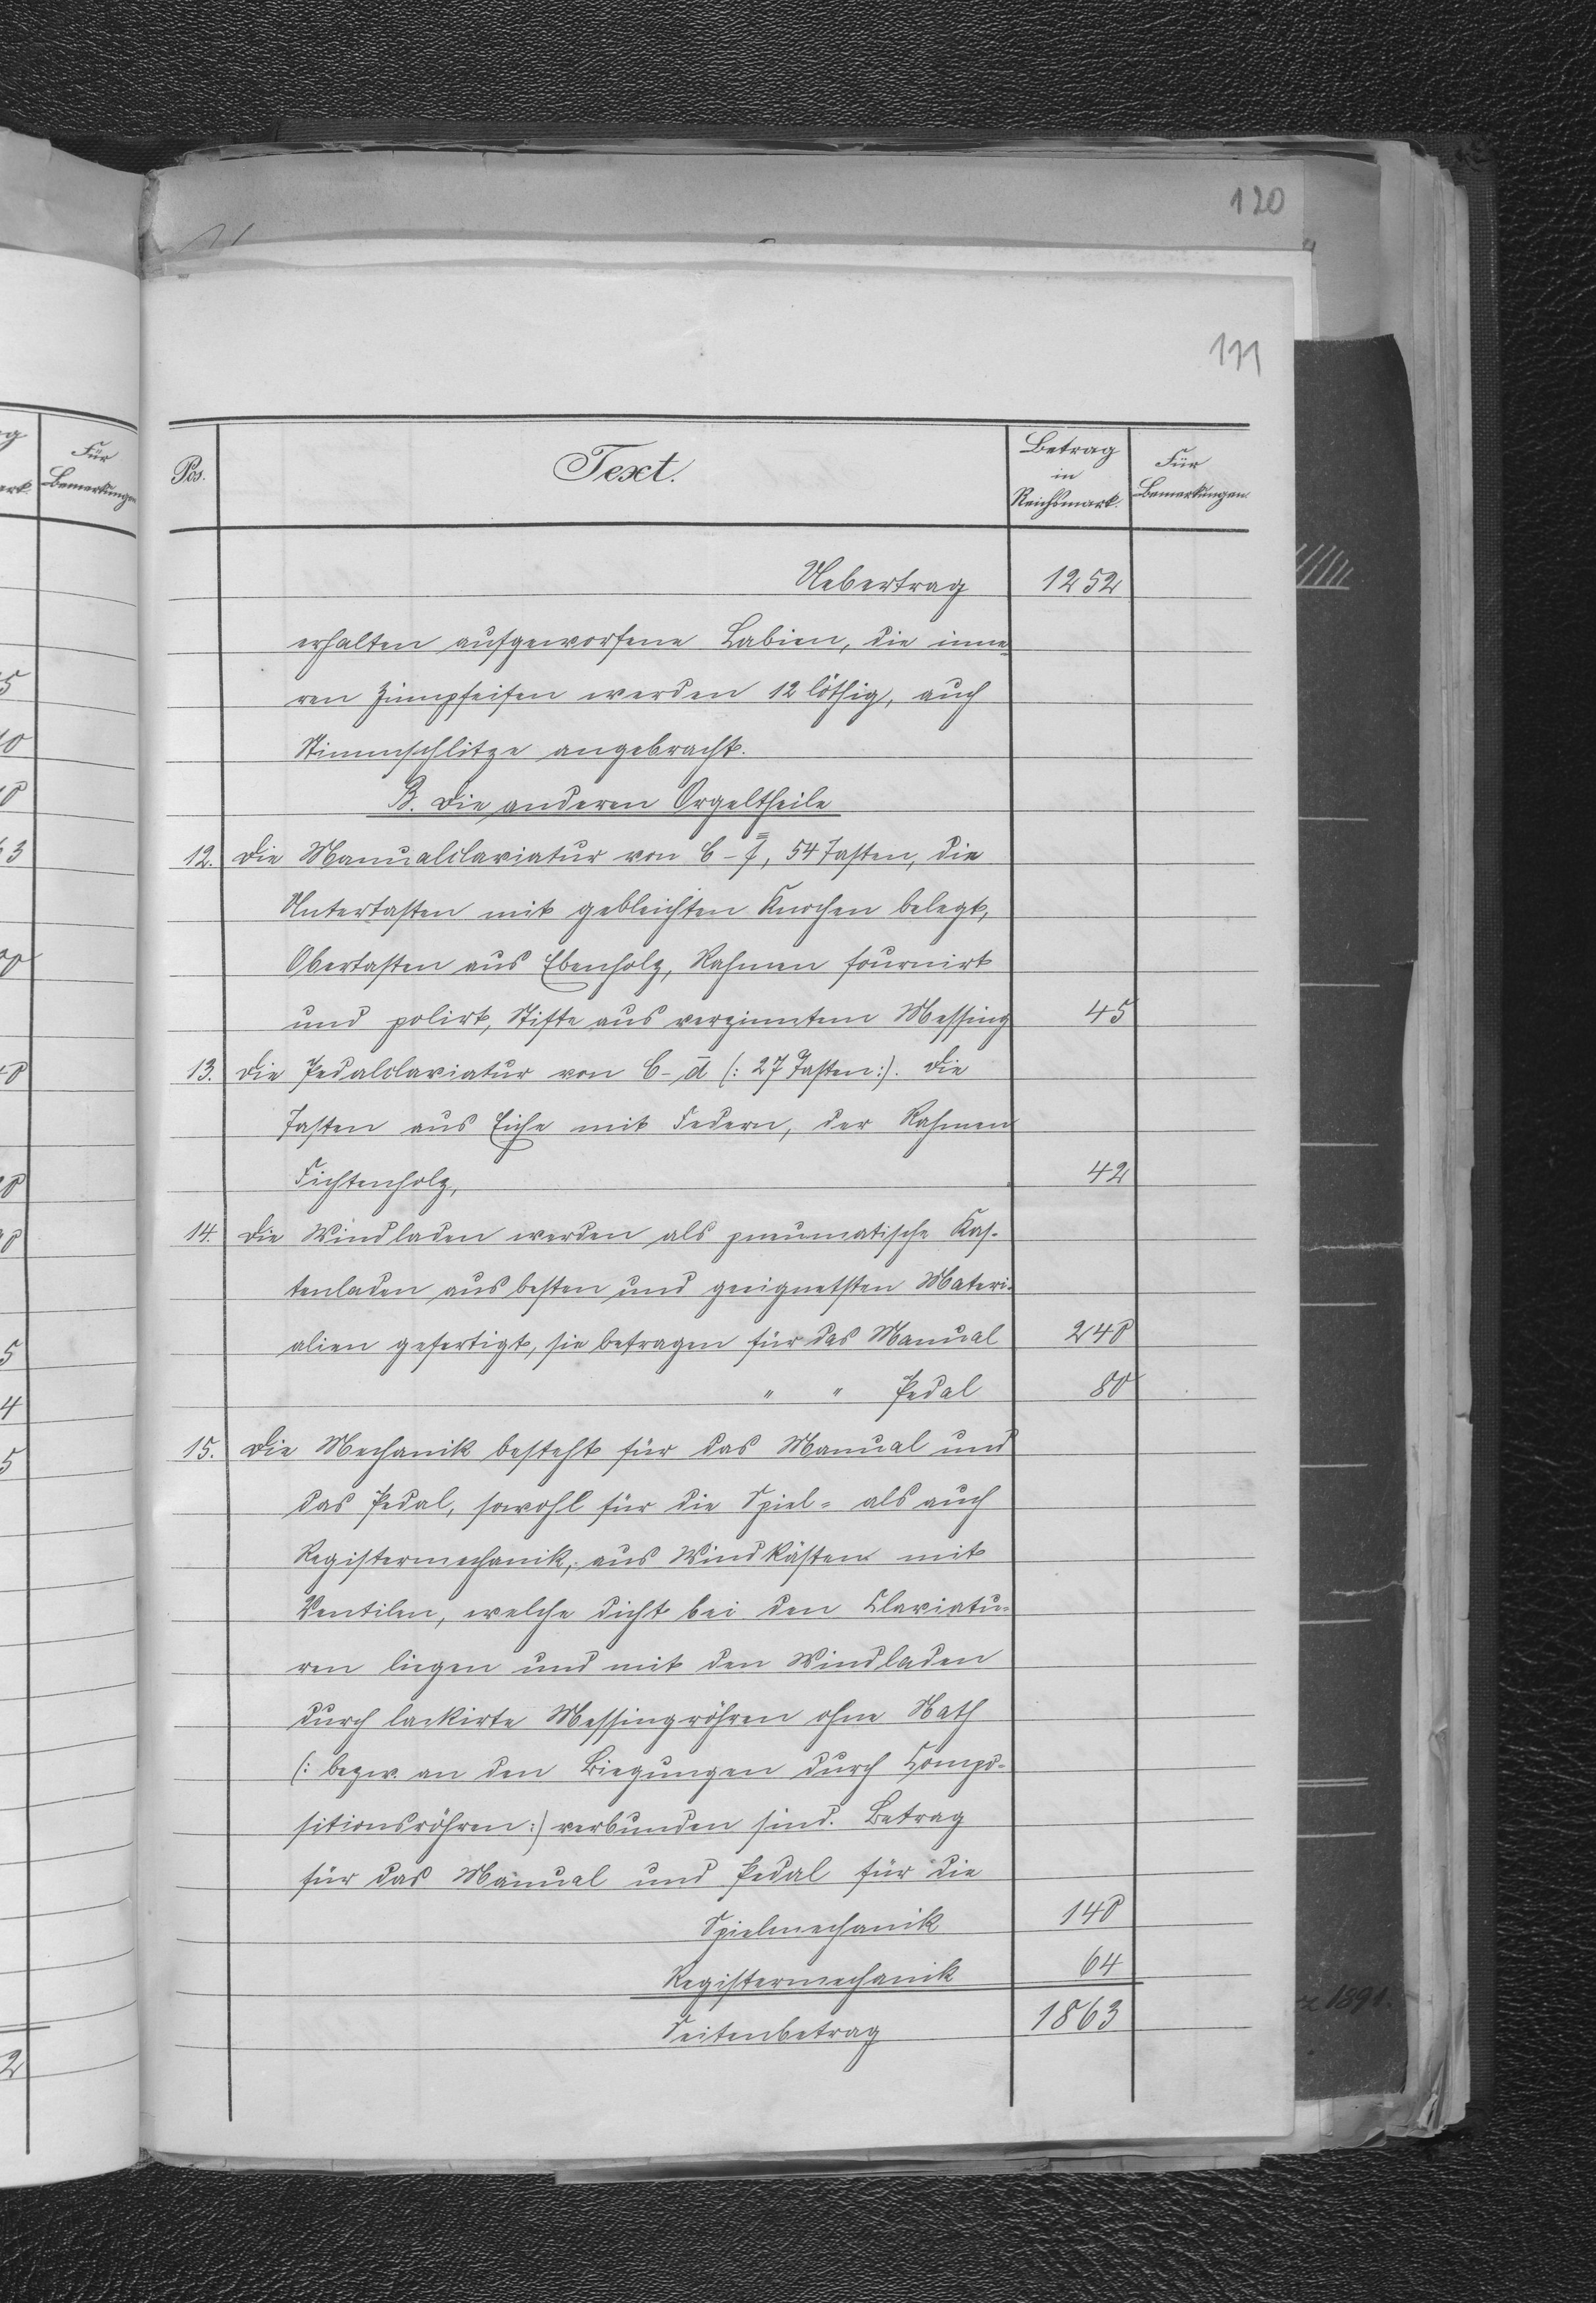 120
171
Pos. Text. Betrag in Reichsmark. Für Bemerkungen
Uebertrag 1252
erhalten aufgeworfene Labien, die inne=
ren Zinnpfeifen werden 12 löthig, auch
Stimmschlitze angebracht.
B. Die anderen Orgeltheile
12. Die Manualclaviatur von C – f̿, 54 Tasten, die
Untertasten mit gebleichten Knochen belegt,
Obertasten aus Ebenholz, Rahmen fournirt
und polirt, Stifte aus verzinntem Messing 45
13. Die Pedalclaviatur von C – d̄ (: 27 Tasten :). Die
Tasten aus Eiche mit Federn, der Rahmen
Fichtenholz, 42
14. Die Windladen werden als pneumatische Kas-
tenladen aus besten und geeignetsten Materi-
alien gefertigt, sie betragen für das Manual 240
" " Pedal 80
15. Die Mechanik besteht für das Manual und
das Pedal, sowohl für die Spiel= als auch
Registermechanik, aus Windkästen mit
Ventilen, welche dicht bei den Claviatu=
ren liegen und mit den Windladen
durch lackirte Messingröhren ohne Nath
(: bezw. an den Biegungen durch Compo=
sitionsröhren :) verbunden sind. Betrag
für das Manual und Pedal für die
Spielmechanik 140
Registermechanik 64
Seitenbetrag 1863
1891.